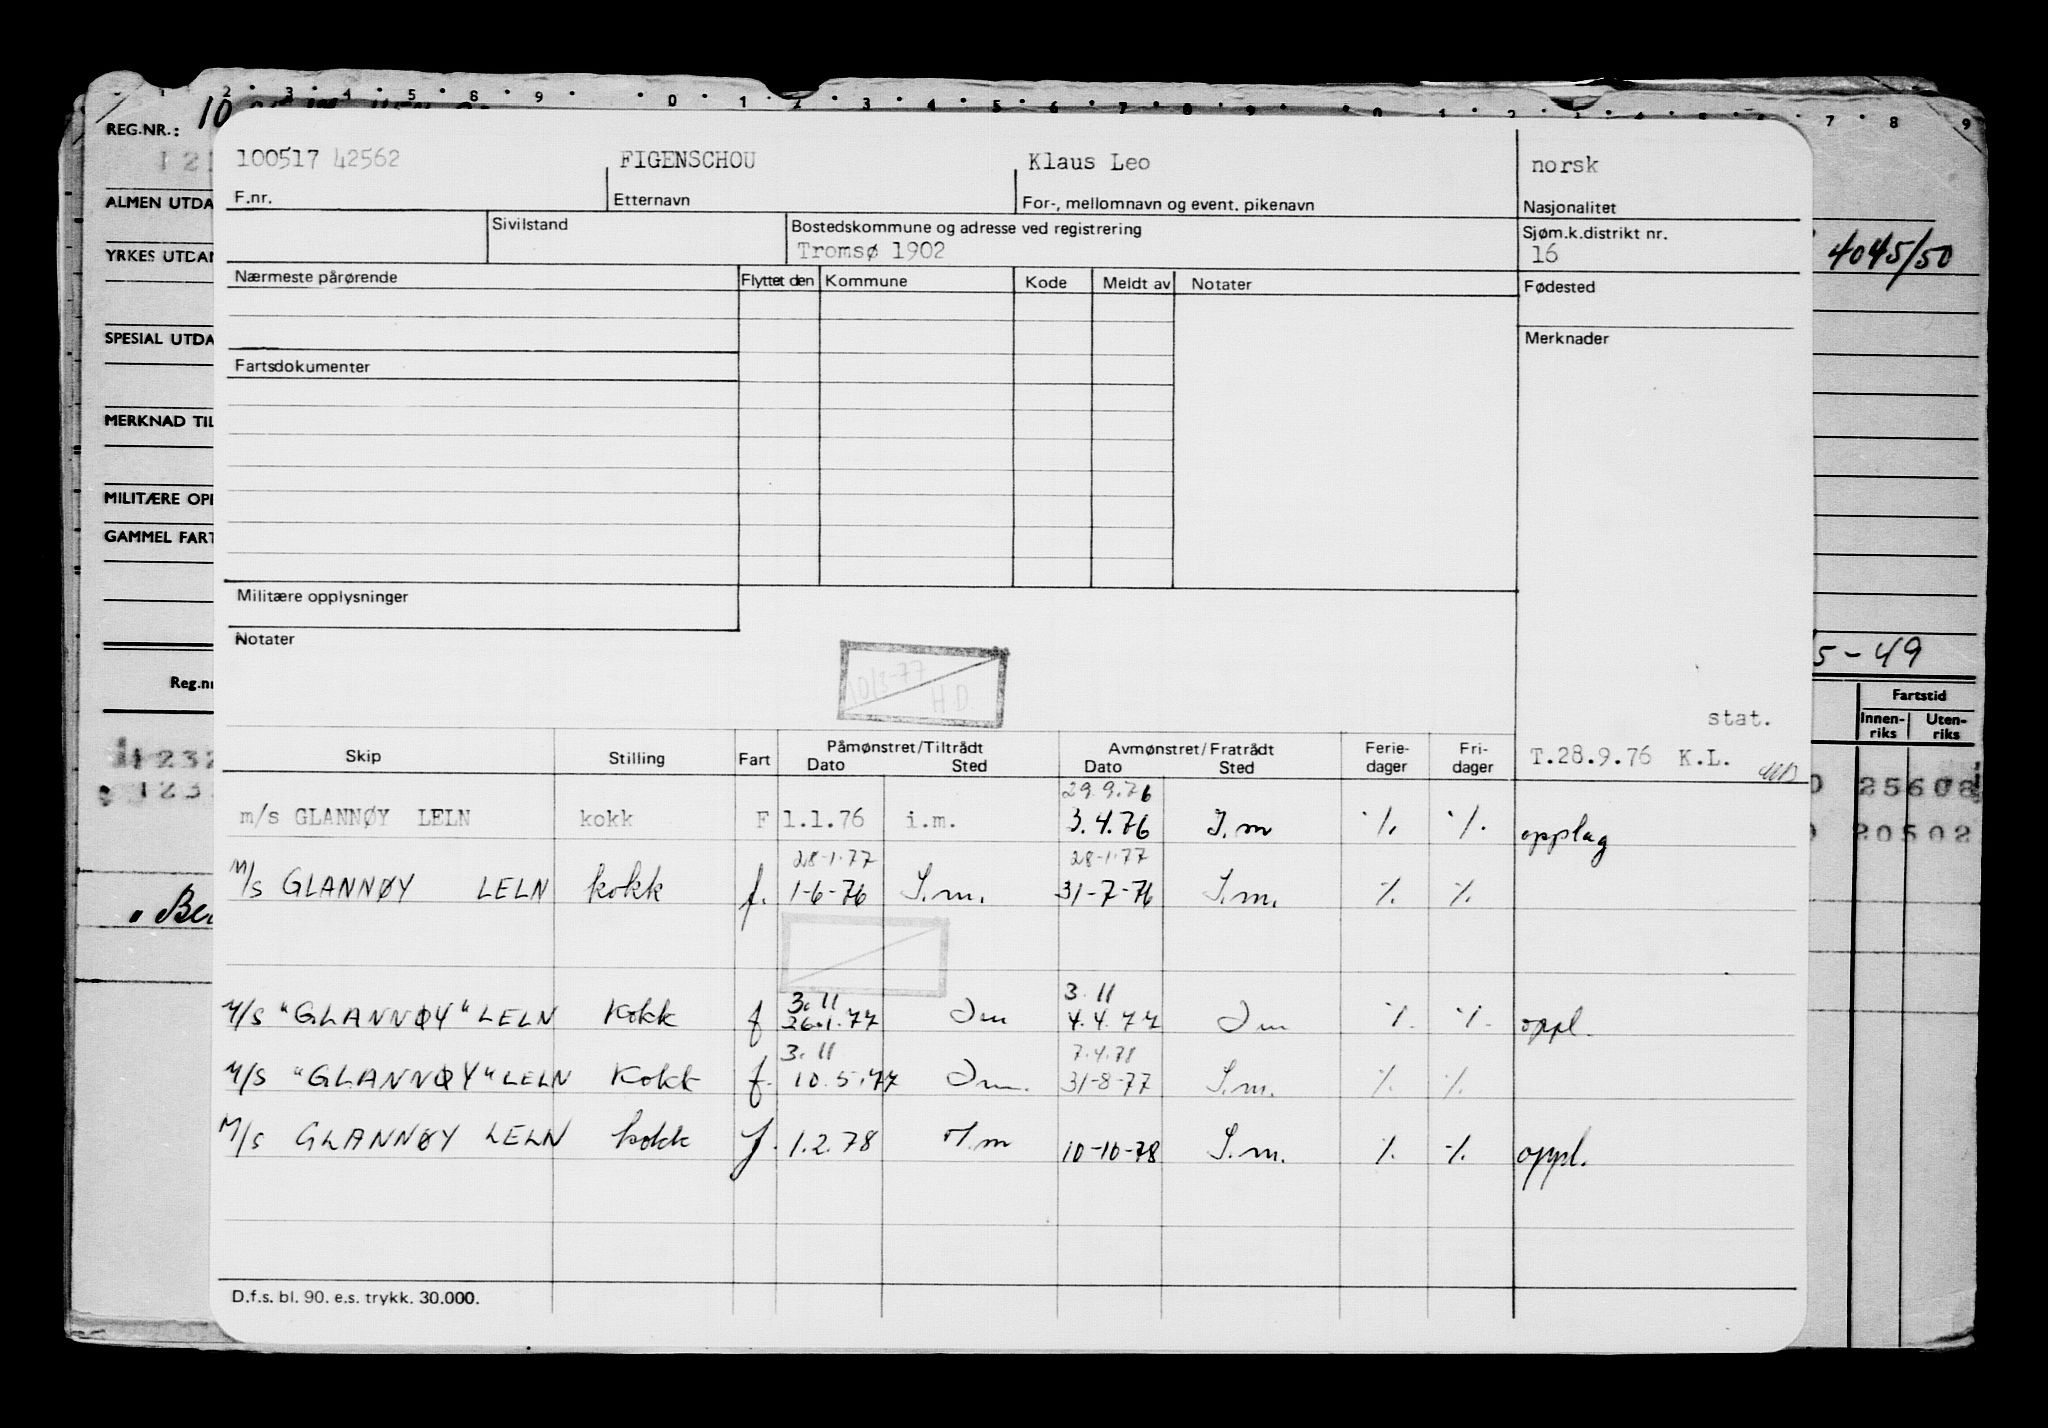 1 2 3 4 5 8 9 0 1 2 3 4 5 6 7 8 9 0 1 2 7 8 9
REG.NR.: 10
100517 42562 FIGENSCHOU Klaus Leo norsk
F.nr. Etternavn For-, mellomnavn og event. pikenavn Nasjonalitet
ALMEN UTDA
Sivilstand Bostedskommune og adresse ved registrering Sjøm.k.distrikt nr.
YRKES UTDAN Tromsø 1902 16 4045/50
Nærmeste pårørende Flyttet den Kommune Kode Meldt av Notater Fødested
SPESIAL UTDA Merknader
Fartsdokumenter
MERKNAD TIL
MILITÆRE OPP
GAMMEL FART
Militære opplysninger
Notater
10/2-77
H.D.
5-49
Reg.nr Fartstid
stat. Innen-riks Uten-riks
Skip Stilling Fart Påmønstret/Tiltrådt Avmønstret/Fratrådt Ferie-dager Fri-dager
Dato Sted Dato Sted T.28.9.76 K.L.
29.9.76
m/s GLANNØY LELN kokk F 1.1.76 i.m. 3.4.76 I.m ·/. ·/. opplag
28-1-77 28-1-77
M/s GLANNØY LELN kokk f. 1-6-76 I.m. 31-7-76 I.m. ·/. ·/.
3.11 3.11
M/s "GLANNØY" LELN Kokk f 26.1.77 Im 4.4.77 Im ·/. ·/. oppl.
3.11 7.4.78
M/s "GLANNØY" LELN Kokk f. 10.5.77 Im. 31-8-77 I.m. ·/. ·/.
M/s GLANNØY LELN kokk f. 1.2.78 I.m 10-10-78 I.m. ·/. ·/. oppl.
D.f.s. bl. 90. e.s. trykk. 30.000.